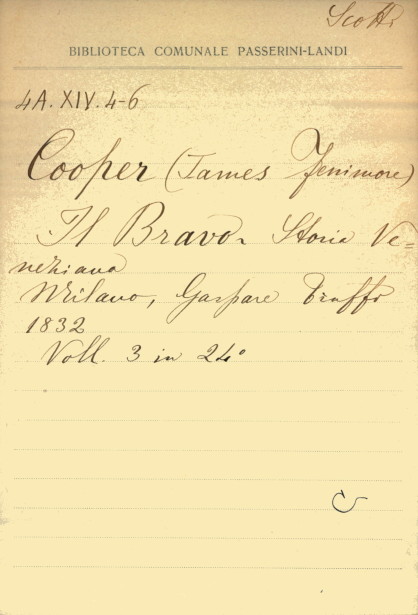 Scotti
BIBLIOTECA COMUNALE PASSERINI-LANDI
4A. XIV. 4-6
Cooper (James Fenimore)
Il Bravo. Storia Ve=
neziana
Milano, Gaspare Truffi
1832
Voll. 3 in 24°